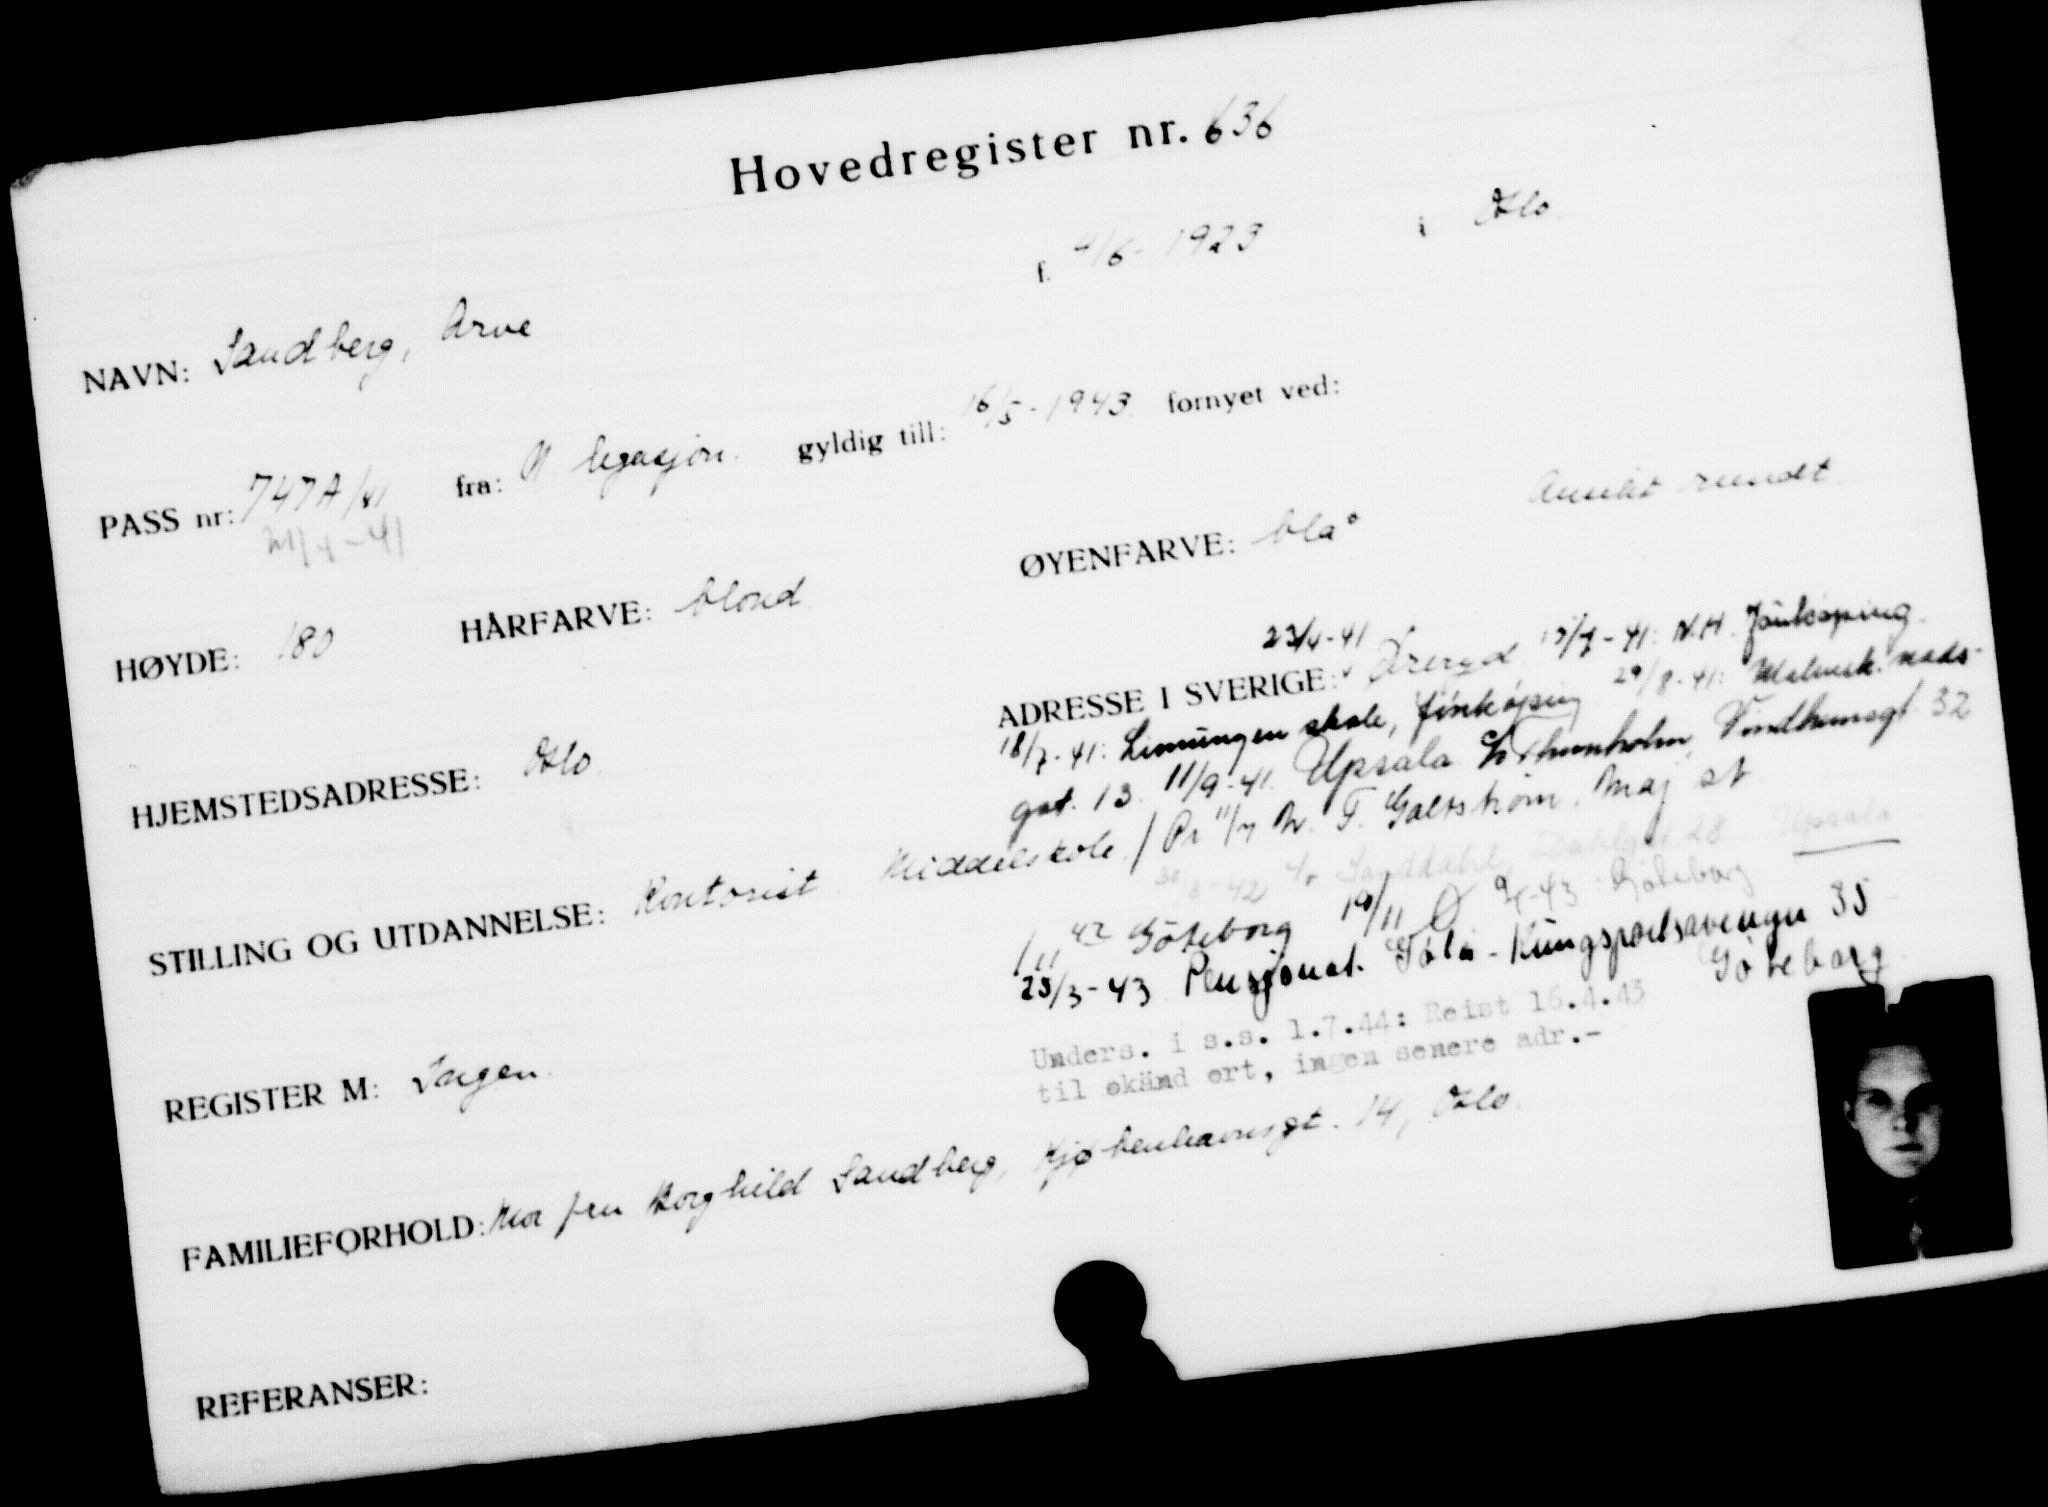 Hovedregister nr. 636
NAVN: Sandberg, Arve f. 4/6-1923 i Oslo
PASS nr: 747A/41 fra: N legasjon. gyldig till: 16/5-1943. fornyet ved:
21/4-41
HØYDE: 180 HÅRFARVE: blond. ØYENFARVE: blå Ansikt rundt
23/4-41
HJEMSTEDSADRESSE: Oslo ADRESSE I SVERIGE: Öreryd 15/7-41: N.H. Jönköping.
18/7-41: Limungen skole, Jönköping 29/8-41: nads-
gat. 13. 11/9-41. Upsala c/o Thunholm, Vindhemsgt 32
STILLING OG UTDANNELSE: Kontorist Middelskole / Pr 11/7 T. Galtstrøm, Maj st
30/3-42 c/o Dahlgt 28 Upsala
/11 42 Göteborg 19/11 Ö -43: Göteborg
25/3-43 Pensjonat Göta - Kungsportsavenyn 35
Göteborg
REGISTER M: Ingen.
Unders. i s.s. 1.7.44: Reist 16.4.43
til okänd ort, ingen senere adr.-
FAMILIEFORHOLD: Mor fru Borghild Sandberg, Kjøbenhavnsgt. 14, Oslo.
REFERANSER: